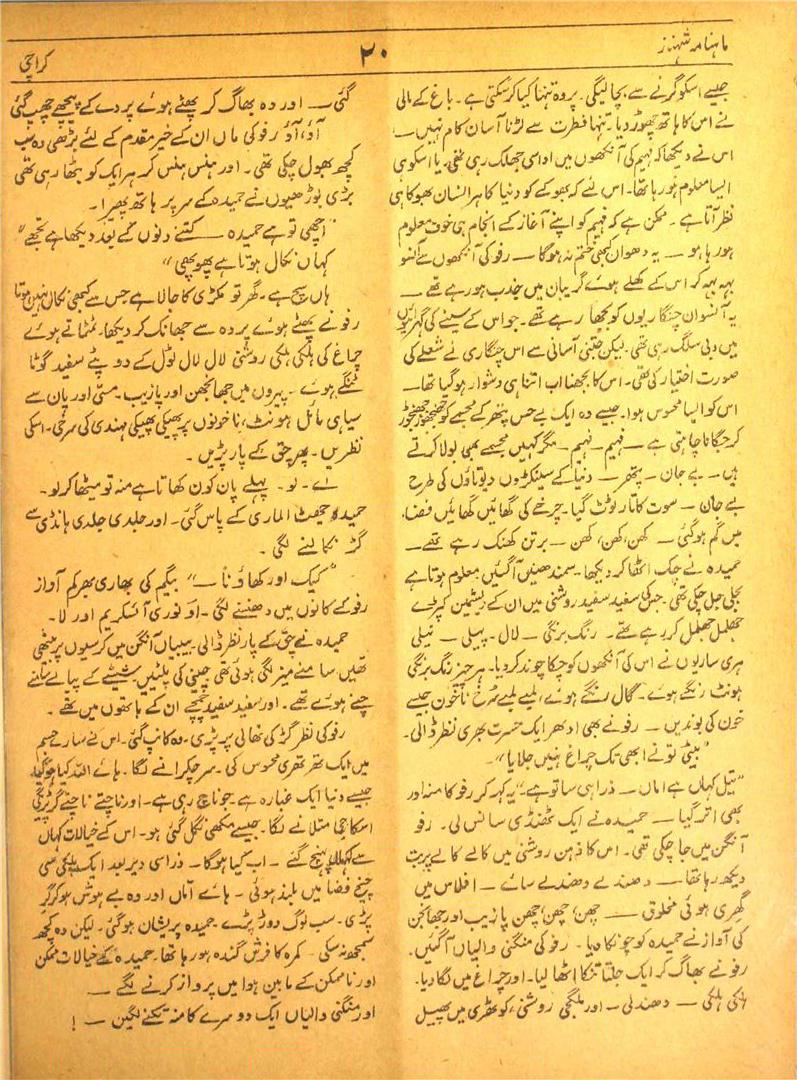 ماہنامہ شہناز
۲۰
کراچی
جیسے اسکو گرنے سے بچا لیگی۔ پر وہ تنہا کیا کر سکتی ہے۔ باغ کے مالی
نے اس کا ہاتھ چھوڑ دیا۔ تنہا فطرت سے لڑنا آسان کام نہیں ــــ
اس نے دیکھا کہ فہیم کی آنکھوں میں اداسی جھلک رہی تھی۔ یا اسکو ہی
ایسا معلوم ہو رہا تھا۔ اس لئے کہ بھوکے کو دنیا کا ہر انسان بھوکا ہی
نظر آتا ہے۔ ممکن ہے کہ فہیم کو اپنے آغاز کے انجام ہی خوف معلوم
ہو رہا ہو ــــ یہ دھواں کبھی ختم نہ ہوگا ــــ رفو کی آنکھوں سے آنسو
بہہ بہہ کر اس کے کھلے ہوئے گریبان میں جذب ہو رہے تھے ــــ
یہ آنسو ان چنگاریوں کو بجھا رہے تھے۔ جو اس کے سینے کی گہرائیوں
میں دبی سلگ رہی تھی۔ لیکن جتنی آسانی سے اس چنگاری نے شعلے کی
صورت اختیار کی تھی۔ اس کا بجھنا اب اتنا ہی دشوار ہو گیا تھا ــــ
اس کو ایسا محسوس ہوا۔ جیسے وہ ایک بے حس پتھر کے مجسمے کو جھنجھوڑ جھنجھوڑ
کر جگانا چاہتی ہے ــــ فہیم ــــ فہیم ــــ مگر کہیں مجسمے بھی بولا کرتے
ہیں ــــ بے جان ــــ پتھر ــــ دنیا کے سینکڑوں دیوتاؤں کی طرح
بے جان ــــ سوت کا تار ٹوٹ گیا۔ چرخے کی گھائیں گھائیں فضا،
میں گم ہو گئی ــــ کھن، کھن، کھن ــــ برتن کھنک رہے تھے ــــ
حمیدہ نے چک اٹھا کر دیکھا۔ سمدھنیں آگئیں معلوم ہوتا ہے
بجلی جل چکی تھی۔ جسکی سفید سفید روشنی میں ان کے ریشمین کپڑے
جھلمل جھلمل کر رہے تھے۔ رنگ برنگی ــــ لال۔ پیلی ــــ نیلی
ہری ساریوں نے اس کی آنکھوں کو چکا چوند کر دیا۔ ہر چیز رنگ برنگی
ہونٹ رنگے ہوئے۔ گال رنگے ہوئے، لمبے لمبے سرخ ناخون جیسے
خون کی بوندیں ــــ رفو نے بھی ادھر ایک حسرت بھری نظر ڈالی۔
"بیٹی تو نے ابھی تک چراغ نہیں جلایا"۔
"تیل کہاں ہے اماں ــــ ذرا ہی سا تو ہے"۔ یہ کہہ کر رفو کا منہ اور
بھی اتر گیا ــــ حمیدہ نے ایک ٹھنڈی سانس لی۔ رفو
آنگن میں جا چکی تھی۔ اس کا ذہن روشنی میں کالے کالے پربت
دیکھ رہا تھا ــــ دھندلے دھندلے سائے ــــ افلاس میں
گھری ہوئی مخلوق ــــ چھن، چھن، چھن پازیب اور جھانجن
کی آواز نے حمیدہ کو چونکا دیا۔ رفو کی منگنی والیاں آگئیں۔
رفو نے بھاگ کر ایک جلتا تنکا اٹھا لیا۔ اور چراغ میں لگا دیا۔
ہلکی ہلکی ــــ دھندلی ــــ اور ملگجی روشنی، کوٹھری میں پھیل
گئی ــــ اور وہ بھاگ کر پھٹے ہوئے پردے کے پیچھے چھپ گئی
آؤ، آؤ رفو کی ماں ان کے خیر مقدم کے لئے بڑھی وہ سب
کچھ بھول چکی تھی۔ اور ہنس ہنس کر ہر ایک کو بٹھا رہی تھی
بڑی بوڑھیوں نے حمیدہ کے سر پر ہاتھ پھیرا۔
"اچھی تو ہے حمیدہ ــــ کتنے دنوں کے بعد دیکھا ہے تجھے"
کہاں نکال ہوتا ہے پھوپھی"
ہاں سچ ہے۔ گھر تو مکڑی کا جالا ہے جس سے کبھی نکال نہیں ہوتا
رفو نے پھٹے ہوئے پردہ سے جھانک کر دیکھا۔ ٹمٹماتے ہوئے
چراغ کی ہلکی ہلکی روشنی لال لال ٹول کے دوپٹے سفید گوٹا
ٹنکے ہوئے۔ پیروں میں جھانجھن اور پازیب۔ مسی اور پان سے
سیاہی مائل ہونٹ، ناخونوں پر پھیکی پھیکی مہندی کی سرخی۔ اسکی
نظریں۔ پھر چق کے پار پڑیں۔
اے۔ لو۔ پہلے پان کون کھاتا ہے منہ تو میٹھا کر لو۔
حمیدہ جھٹ الماری کے پاس گئی۔ اور جلدی جلدی ہانڈی سے
گڑ نکالنے لگی۔
"کیک اور کھاؤ نا ــــ" بیگم کی بھاری بھرکم آواز
رفو کے کانوں میں دھنسنے لگی۔ او نوری آئسکریم اور لا۔
حمیدہ نے چق کے پار نظر ڈالی۔ بیبیاں آنگن میں کرسیوں پر بیٹھی
تھیں سامنے میز لگی ہوئی تھی چینی کی پلٹیں شیشے کے پیالے
چنے ہوئے تھے۔ اور سفید سفید چمچے ان کے ہاتھوں میں تھے۔
رفو کی نظر گڑ کی تھالی پر پڑی۔ وہ کانپ گئی۔ اس نے سارے جسم
میں ایک تھرتھری محسوس کی۔ سر چکرانے لگا۔ ہائے اللہ کیا ہوگیا
جیسے دنیا ایک غبارہ ہے جو ناچ رہی ہے۔ اور ناچتے ناچتے گر پڑیگی
اسکا جی متلانے لگا۔ جیسے مکھی نگل گئی ہو۔ اس کے خیالات کہاں
سے کہاں پہنچ گئے ــــ اب کیا ہوگا ــــ ذرا سی دیر بعد ایک ہلکی سی
چیخ فضا میں بلند ہوئی ــــ ہائے اماں اور وہ بے ہوش ہو کر گر
پڑی۔ سب لوگ دوڑ پڑے۔ حمیدہ پریشان ہو گئی۔ لیکن وہ کچھ
سمجھ نہ سکی ــــ کمرہ کا فرش گندہ ہو رہا تھا۔ حمیدہ کے خیالات ممکن
اور ناممکن کے مابین ہوا میں پرواز کرنے لگے ــــ
اور منگنی والیاں ایک دوسرے کا منہ تکنے لگیں ــــ !